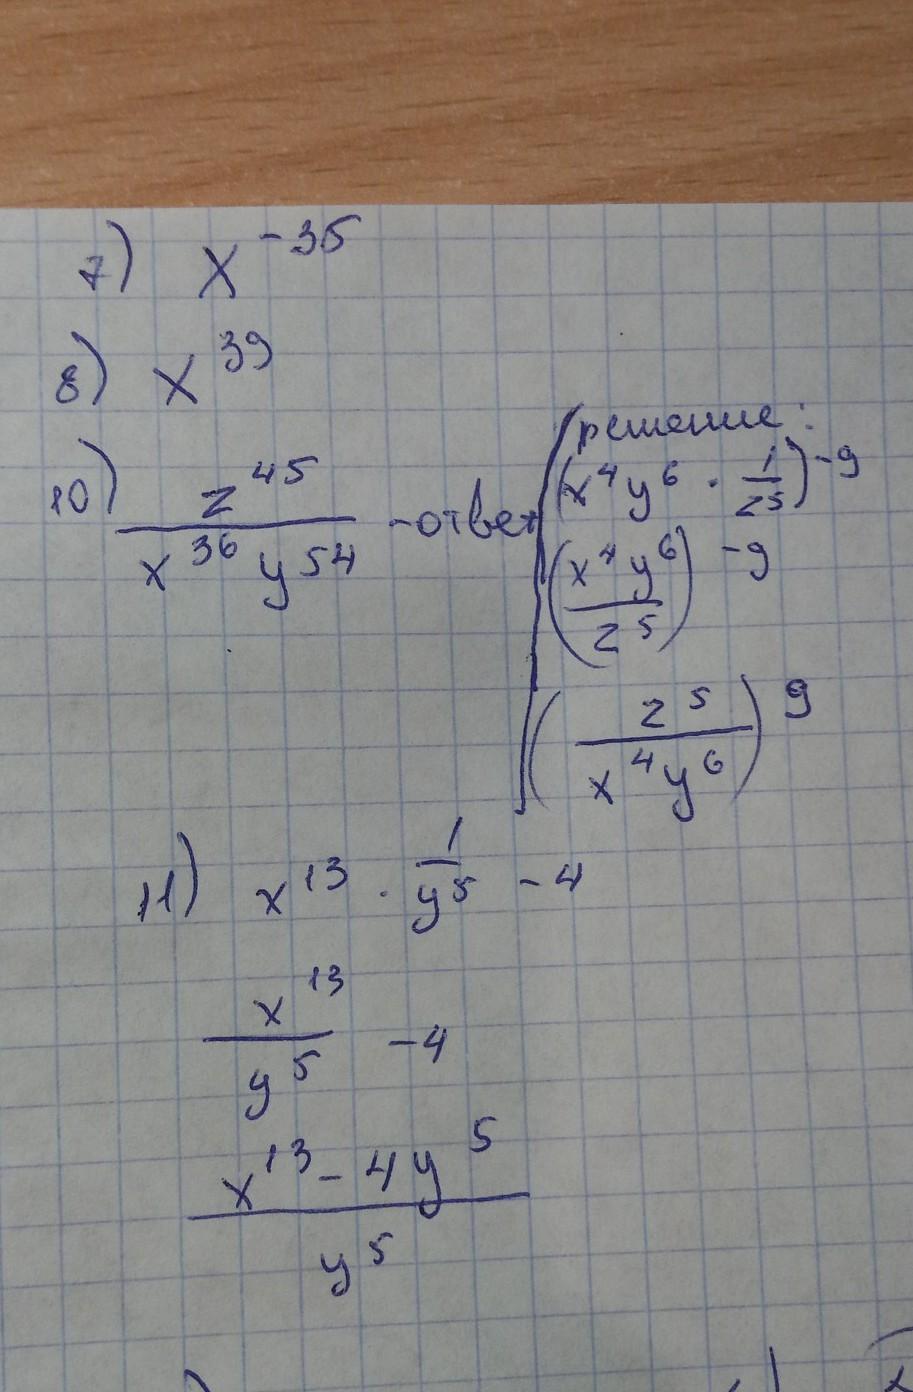 7) x^-35
8) x^39
10) z^45 / x^36 y^54 - ответ
решение:
(x^4 y^6 · 1/z^5)^-9
(x^4 y^6 / z^5)^-9
(z^5 / x^4 y^6)^9
11) x^13 · 1/y^5 - 4
x^13 / y^5 - 4
x^13 - 4y^5 / y^5